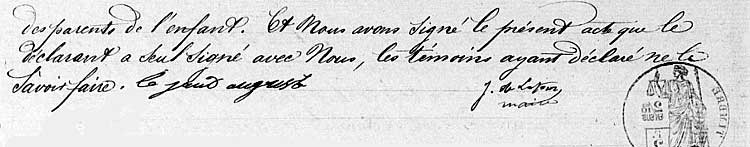 des parents de l'enfant. Et Nous avons signé le présent acte que le
déclarant a seul signé avec Nous, les témoins ayant déclaré ne le
Savoir faire.
maire